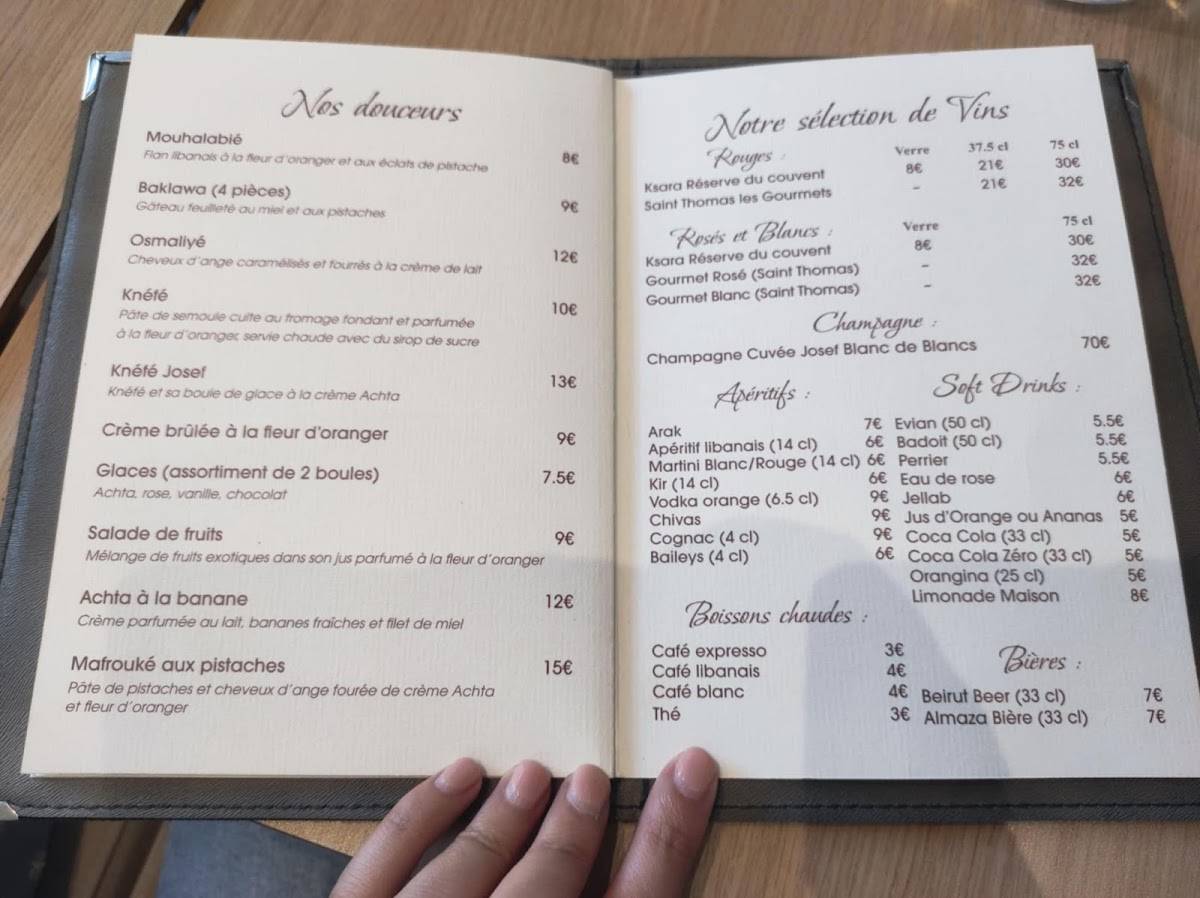 Nos douceurs
Mouhalabié
Flan libanais à la fleur d'oranger et aux éclats de pistache 8€
Baklawa (4 pièces)
Gâteau feuilleté au miel et aux pistaches 9€
Osmaliyé
Cheveux d'ange caramélisés et fourrés à la crème de lait 12€
Knéfé 10€
Pâte de semoule cuite au fromage fondant et parfumée
à la fleur d'oranger, servie chaude avec du sirop de sucre
Knéfé Josef 13€
Knéfé et sa boule de glace à la crème Achta
Crème brûlée à la fleur d'oranger 9€
Glaces (assortiment de 2 boules) 7.5€
Achta, rose, vanille, chocolat
Salade de fruits 9€
Mélange de fruits exotiques dans son jus parfumé à la fleur d'oranger
Achta à la banane 12€
Crème parfumée au lait, bananes fraîches et filet de miel
Mafrouké aux pistaches 15€
Pâte de pistaches et cheveux d'ange fourée de crème Achta
et fleur d'oranger
Notre sélection de Vins
Rouges : Verre 37.5 cl 75 cl
Ksara Réserve du couvent 8€ 21€ 30€
Saint Thomas les Gourmets - 21€ 32€
Rosés et Blancs : Verre 75 cl
Ksara Réserve du couvent 8€ 30€
Gourmet Rosé (Saint Thomas) - 32€
Gourmet Blanc (Saint Thomas) - 32€
Champagne :
Champagne Cuvée Josef Blanc de Blancs 70€
Apéritifs :
Arak 7€
Apéritif libanais (14 cl) 6€
Martini Blanc/Rouge (14 cl) 6€
Kir (14 cl) 6€
Vodka orange (6.5 cl) 9€
Chivas 9€
Cognac (4 cl) 9€
Baileys (4 cl) 6€
Soft Drinks :
Evian (50 cl) 5.5€
Badoit (50 cl) 5.5€
Perrier 5.5€
Eau de rose 6€
Jellab 6€
Jus d'Orange ou Ananas 5€
Coca Cola (33 cl) 5€
Coca Cola Zéro (33 cl) 5€
Orangina (25 cl) 5€
Limonade Maison 8€
Boissons chaudes :
Café expresso 3€
Café libanais 4€
Café blanc 4€
Thé 3€
Bières :
Beirut Beer (33 cl) 7€
Almaza Bière (33 cl) 7€